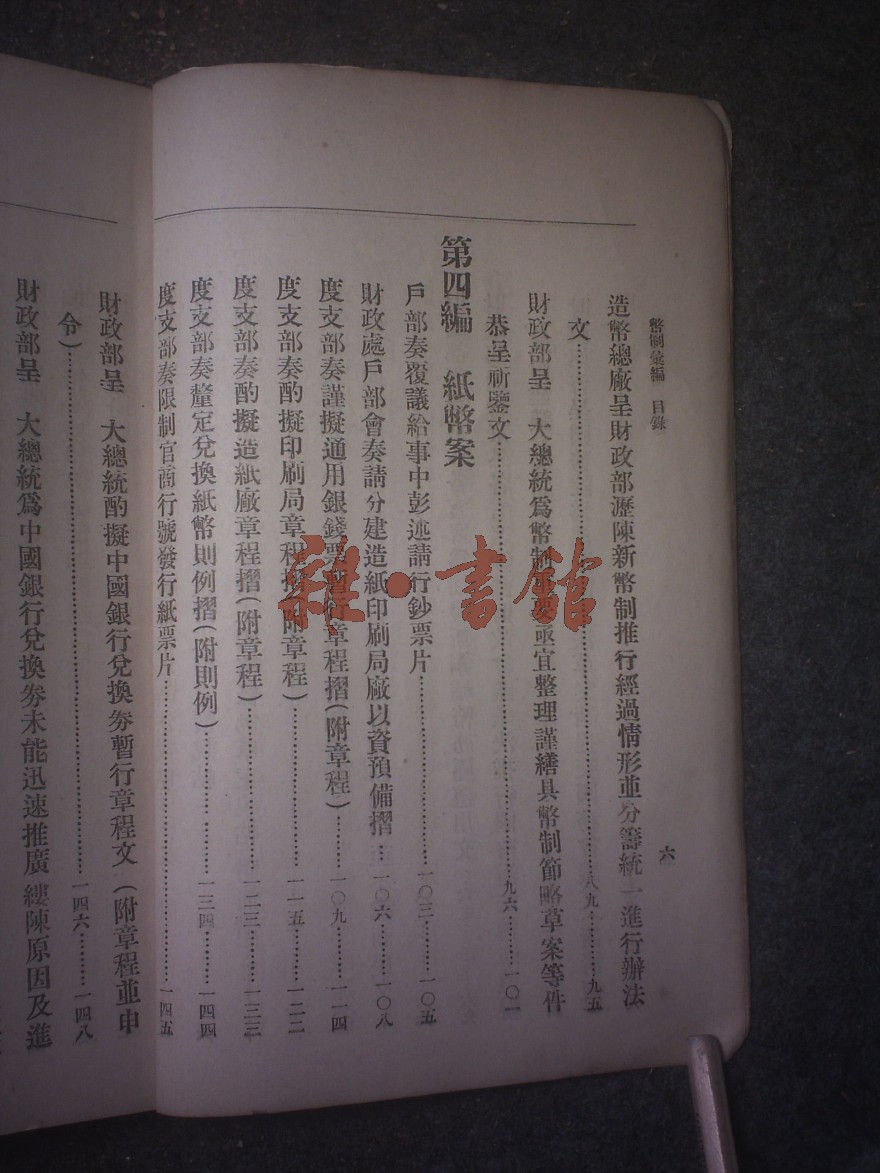 幣制彙編 目錄
六
造幣總廠呈財政部瀝陳新幣制推行經過情形並分籌統一進行辦法
文……八九……九五
財政部呈 大總統爲幣制重要亟宜整理謹繕具幣制節略草案等件
恭呈祈鑒文……九六……一〇一
第四編 紙幣案
戶部奏覆議給事中彭述請行鈔票片……一〇三……一〇五
財政處戶部會奏請分建造紙印刷局廠以資預備摺…一〇六……一〇八
度支部奏謹擬通用銀錢票暫行章程摺(附章程)……一〇九……一一四
度支部奏酌擬印刷局章程摺(附章程)……一一五……一二二
度支部奏酌擬造紙廠章程摺(附章程)……一二三……一三三
度支部奏釐定兌換紙幣則例摺(附則例)……一三四……一四四
度支部奏限制官商行號發行紙票片……一四五
財政部呈 大總統酌擬中國銀行兌換券暫行章程文(附章程並申
令)……一四六……一四八
財政部呈 大總統爲中國銀行兌換券未能迅速推廣縷陳原因及進
雜·書館